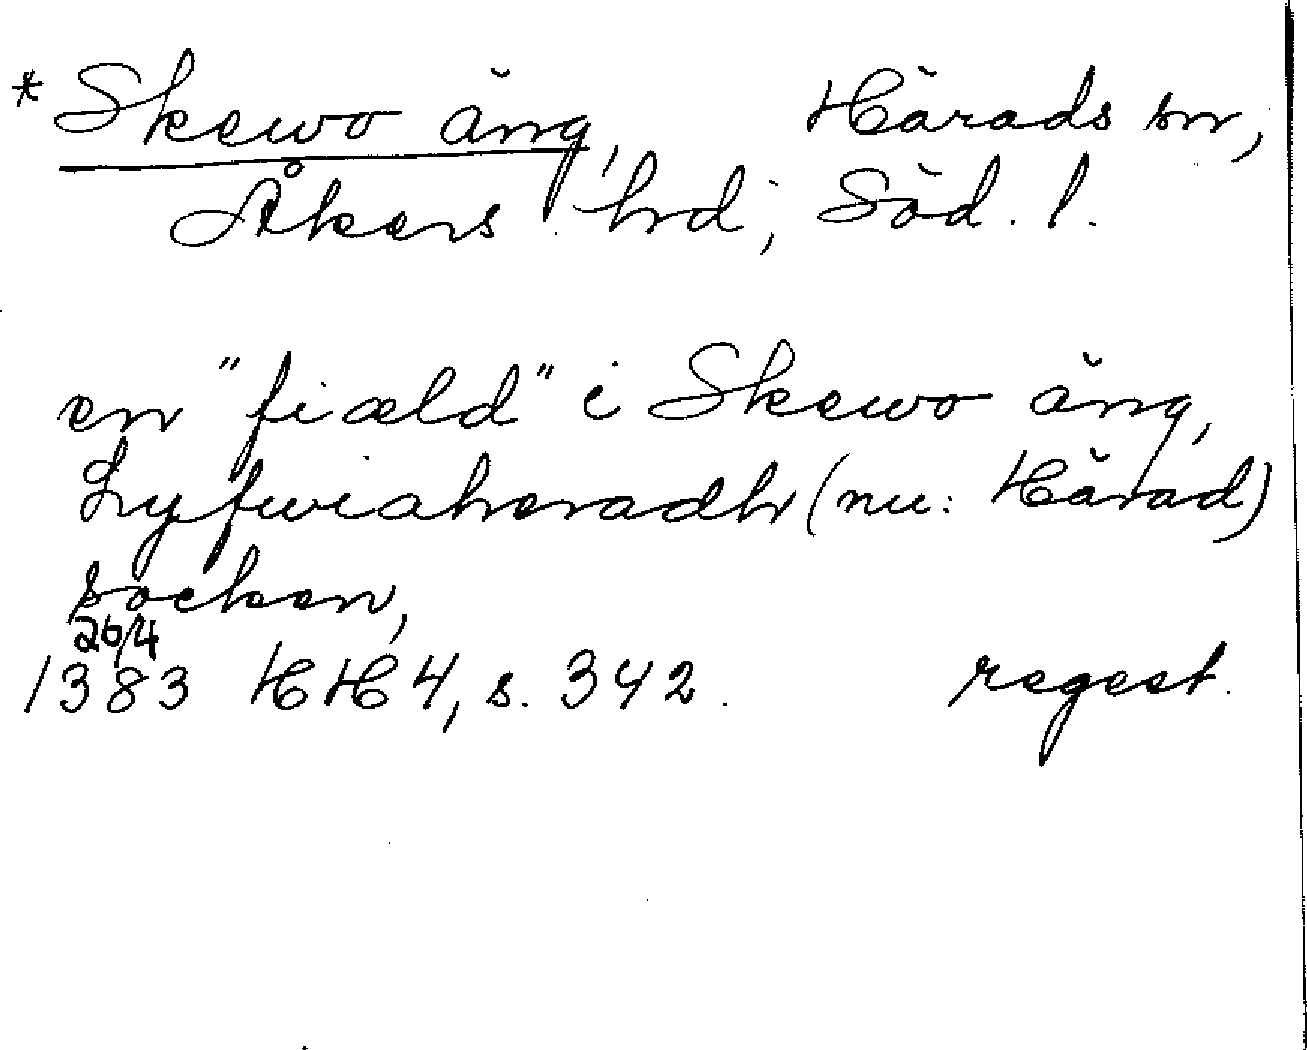 * Skewo äng, Härads sn,
Åkers hd, Söd. l.
en "fiæld" i Skewo äng,
Lyfwiaheradh (nu: Härad)
socken,
26/4
1383 HH 4, s. 342. regest.